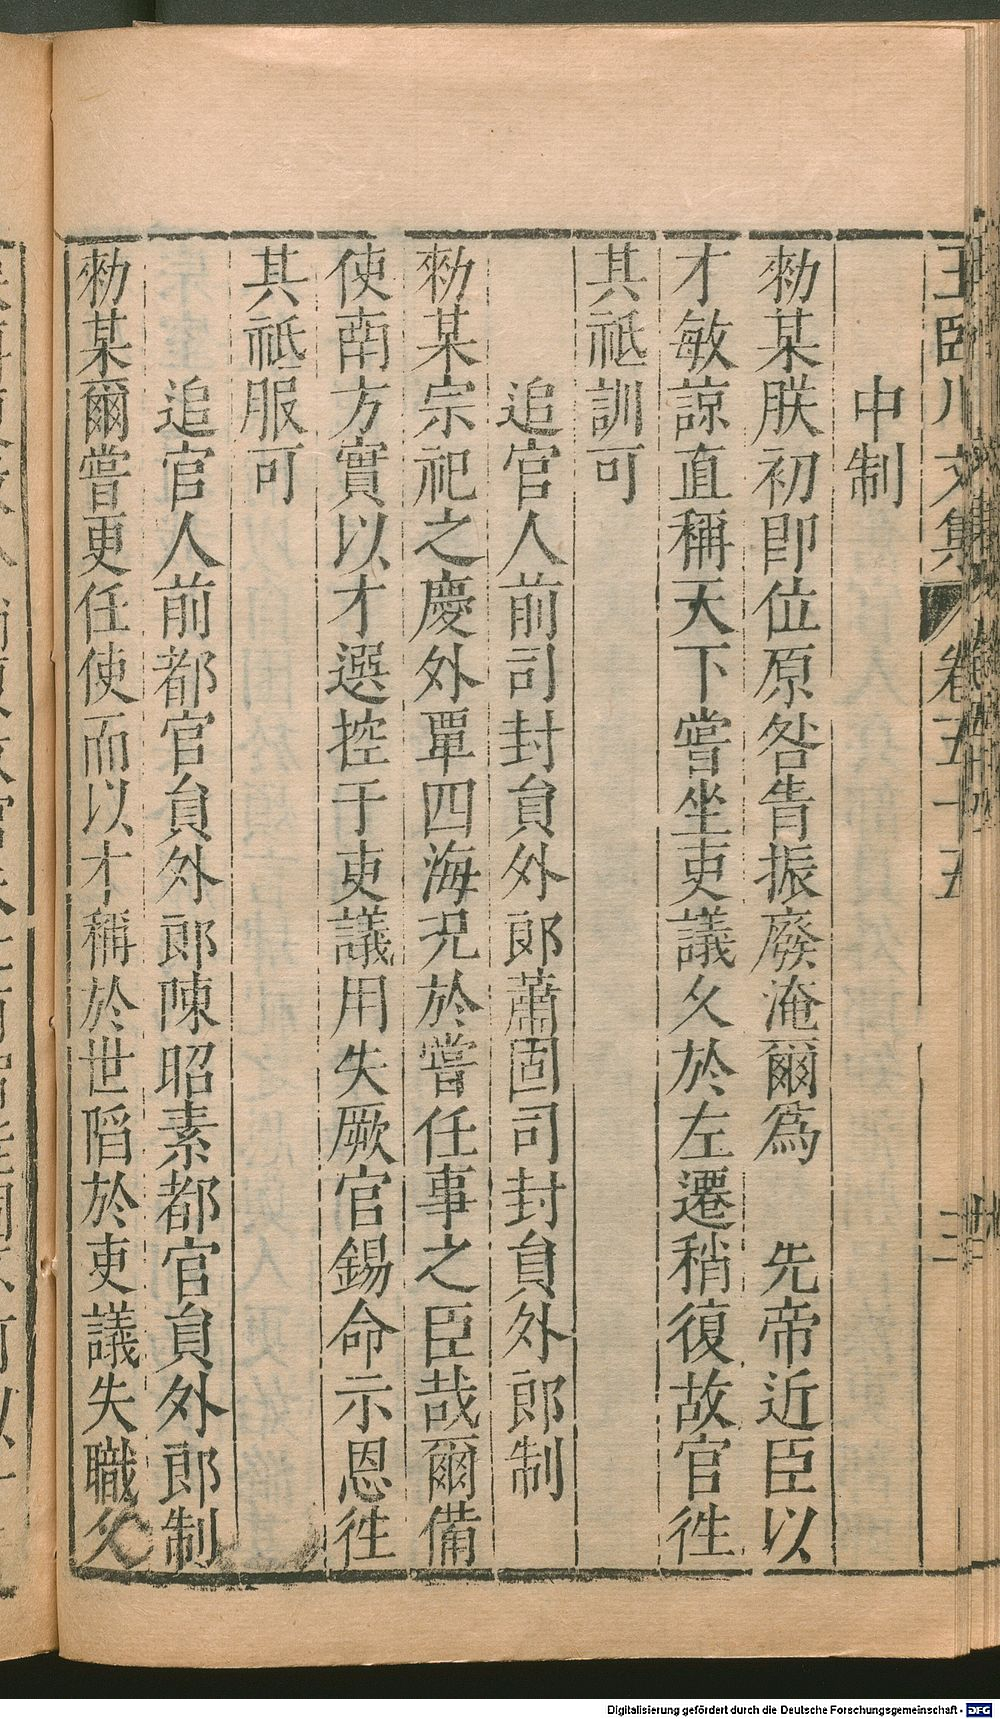 王臨川文集 卷五十五 三
中制
勑某朕初卽位原咎眚振廢淹爾爲 先帝近臣以
才敏諒直稱天下嘗坐吏議久於左遷稍復故官徃
其祗訓可
追官人前司封貟外郎蕭固司封貟外郎制
勑某宗祀之慶外覃四海況於嘗任事之臣哉爾備
使南方實以才選控于吏議用失厥官錫命示恩徃
其祗服可
追官人前都官貟外郎陳昭素都官貟外郎制
勑某爾嘗更任使而以才稱於世䧟於吏議失職久
Digitalisierung gefördert durch die Deutsche Forschungsgemeinschaft - DFG